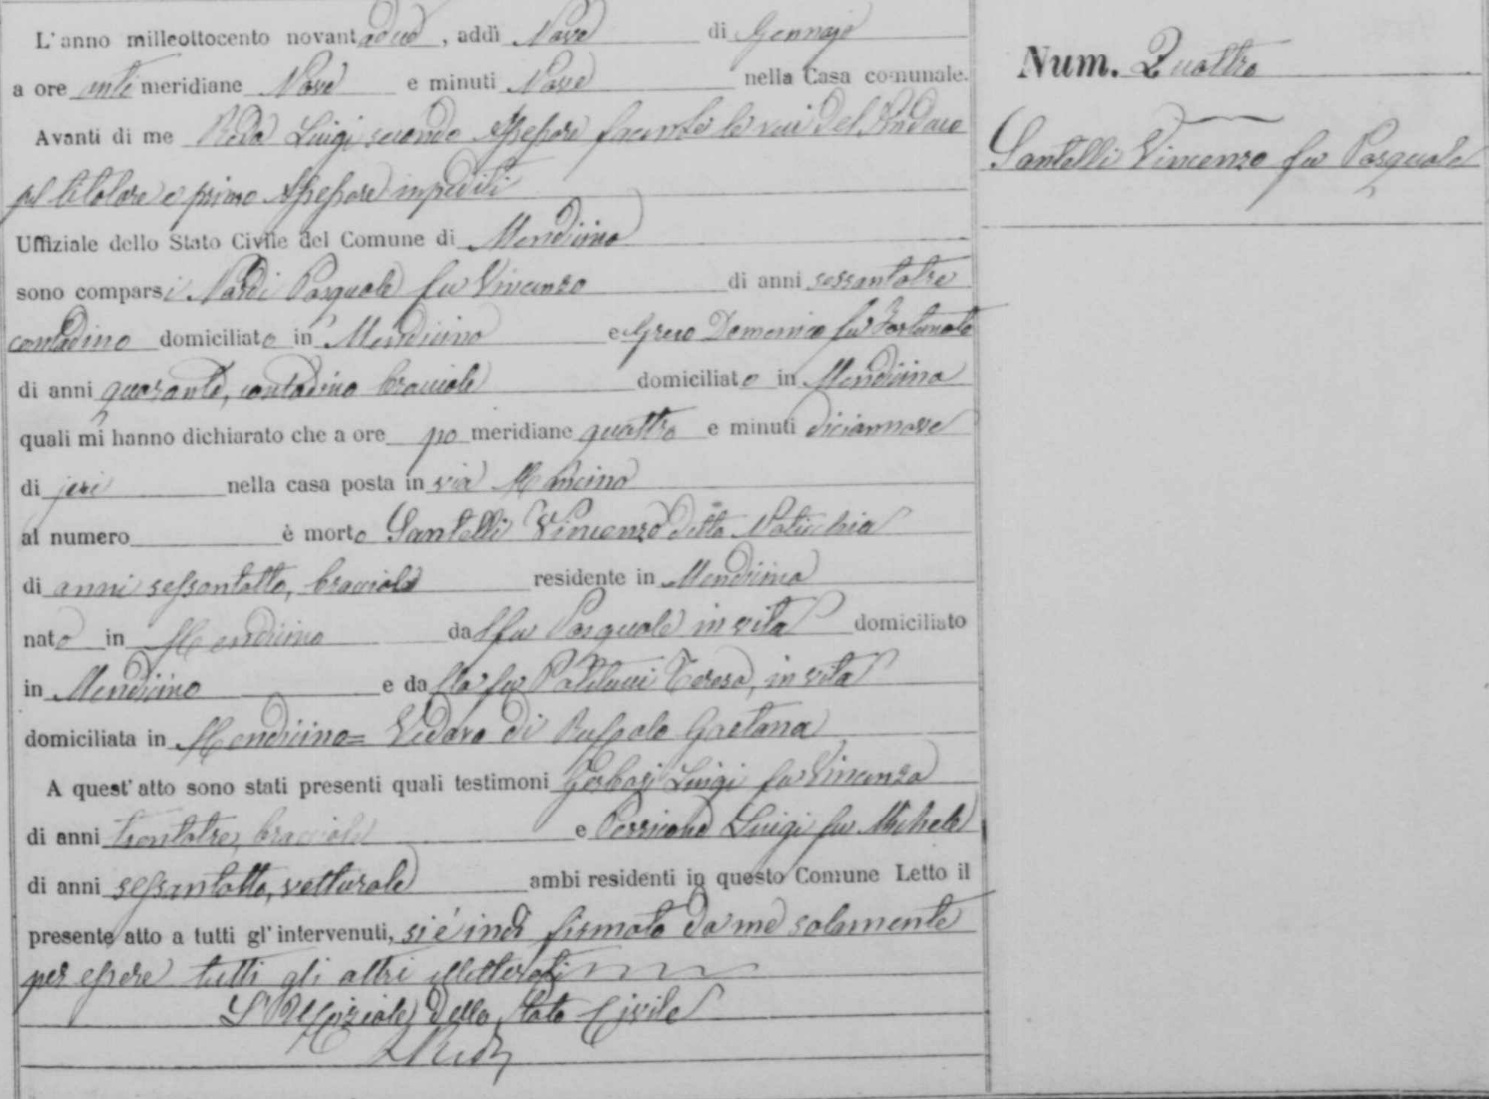 L'anno milleottocento novantadue, addì Nove di Gennajo
a ore anti meridiane Nove e minuti Nove nella Casa comunale.
Avanti di me Reda Luigi secondo Assessore facente le veci del Sindaco
pel titolare e primo Assessore impediti
Uffiziale dello Stato Civile del Comune di Mendicino
sono comparsi Nardi Pasquale fu Vincenzo di anni sessantatre
contadino domiciliato in Mendicino e Greco Domenico fu Fortunato
di anni quaranta, contadino bracciale domiciliato in Mendicino
quali mi hanno dichiarato che a ore po meridiane quattro e minuti diciannove
di jeri nella casa posta in via Mancino
al numero è morto Santelli Vincenzo detto
di anni sessantotto, bracciale residente in Mendicino
nato in Mendicino dal fu Pasquale in vita domiciliato
in Mendicino e dalla fu Teresa, in vita
domiciliata in Mendicino= Vedovo di Gaetana
A quest'atto sono stati presenti quali testimoni Gerbasi Luigi fu Vincenzo
di anni trentatre, bracciale e Perricone Luigi fu Michele
di anni sessantotto, vetturale ambi residenti in questo Comune Letto il
presente atto a tutti gl'intervenuti, si è indi firmato da me solamente
per essere tutti gli altri illetterati
L'Uffiziale dello Stato Civile
LReda
Num. Quattro
Santelli Vincenzo fu Pasquale